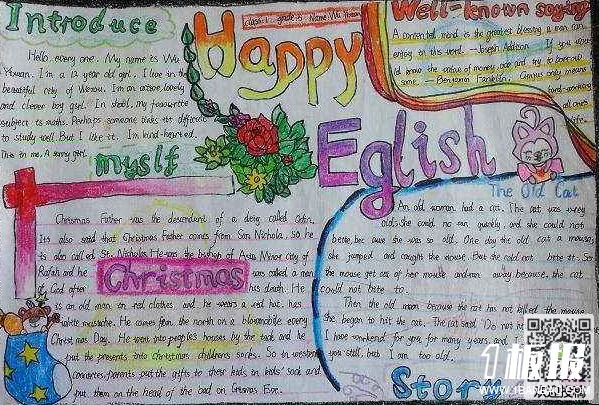 Introduce
Hello, every one. My name is Wu
Yixuan. I'm a 12 year old girl. I live in the
beautiful city of
and clever boy girl. In shool, my favourite
subject is maths. Perhaps someone thinks it's difficult
to study well. But I like it. I'm kind-hearted.
This is me. A sunny girl.
myslf
class:1 grade:5 Name:Wu Yixuan
Happy
Eglish
Well-known saying
A contented mind is the greatest blessing a man can
enjoy in this world. —Joseph Addison If you would
know the value of money, go and try to borrow
some. —Benjamin Franklin. Genius only means
hard-working
all one's
life.
The Old Cat
An old woman had a cat. The cat was very
old. She could no run quickly, and she could not
bite, because she was so old. One day the old cat a mouse,
she jumped and caught the mouse. But she could not bite it. So
the mouse got out of her mouse and ran away because, the cat
could not bite it.
Then the old woman because the cat has not killed the mouse.
She began to hit the cat. The cat said, "Do not
I have worked for you for many years, and I
you still, but I am too old.
Story
Christmas Father was the descendent of a deity called Odin.
It's also said that Christmas Father comes from San Nichola, so he
is also called St. Nicholas He was the bishop of Asia Minor city of
and he
Christmas
was called a man
of God after
his death He
is an old man in red clothes, and he wears a red hat, has
white mustache. He comes from the north on a every
Christmas Day. He went into people's houses by the and he
put the presents into Christmas children's socks. So in western
countries parents put the gifts to their kids in kids' sock and
put them on the head of the bed on Christmas Eve.
1板报
www.1banbao.com